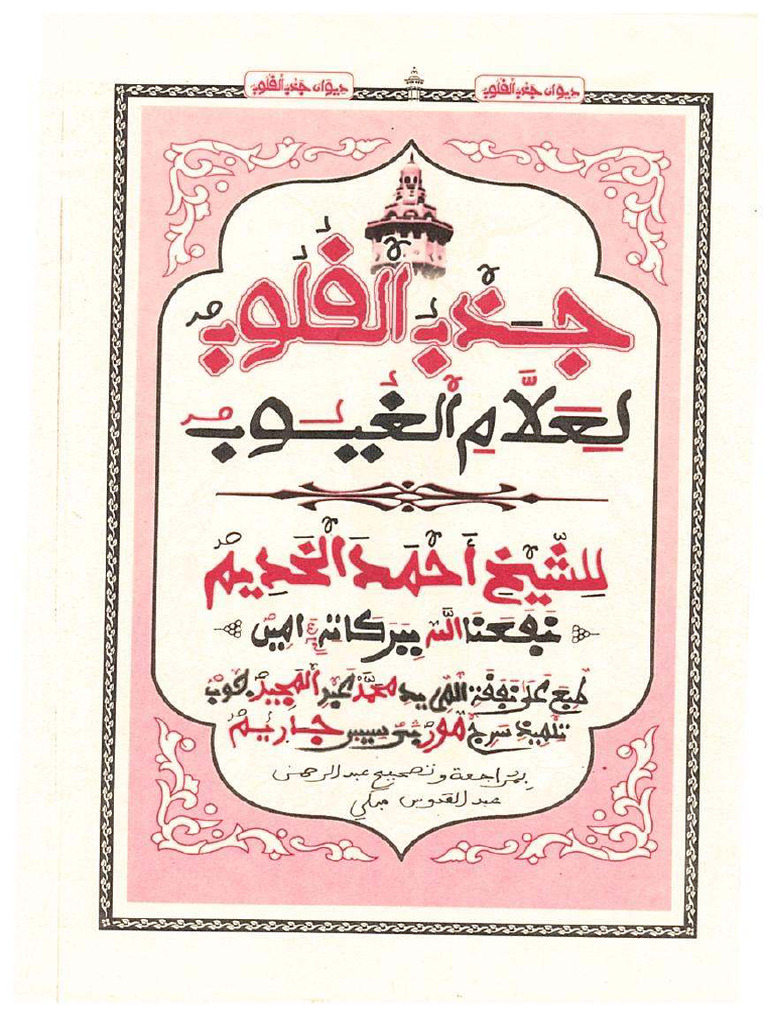 ديوان جذب القلوب
ديوان جذب القلوب
جَذْبُ الْقُلُوبِ
لِعَلَّامِ الْغُيُوبِ
لِلشَّيْخِ أَحْمَدَ الْخَدِيمِ
نَفَعَنَا اللَّهُ بِبَرَكَاتِهِ امين
طبع على نفقة المريد محمد عبد المجيد
تلميذ سرج مور
بمراجعة وتصحيح عبد الرحمن
عبد القدوس مبكي